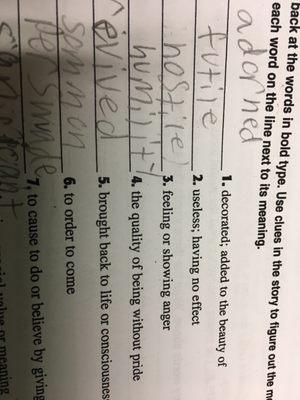 back at the words in bold type. Use clues in the story to figure out the
each word on the line next to its meaning.
adorned 1. decorated; added to the beauty of
futile 2. useless; having no effect
hostile 3. feeling or showing anger
humility 4. the quality of being without pride
revived 5. brought back to life or consciousnes
sommon 6. to order to come
persuade 7. to cause to do or believe by giving
value or meaning